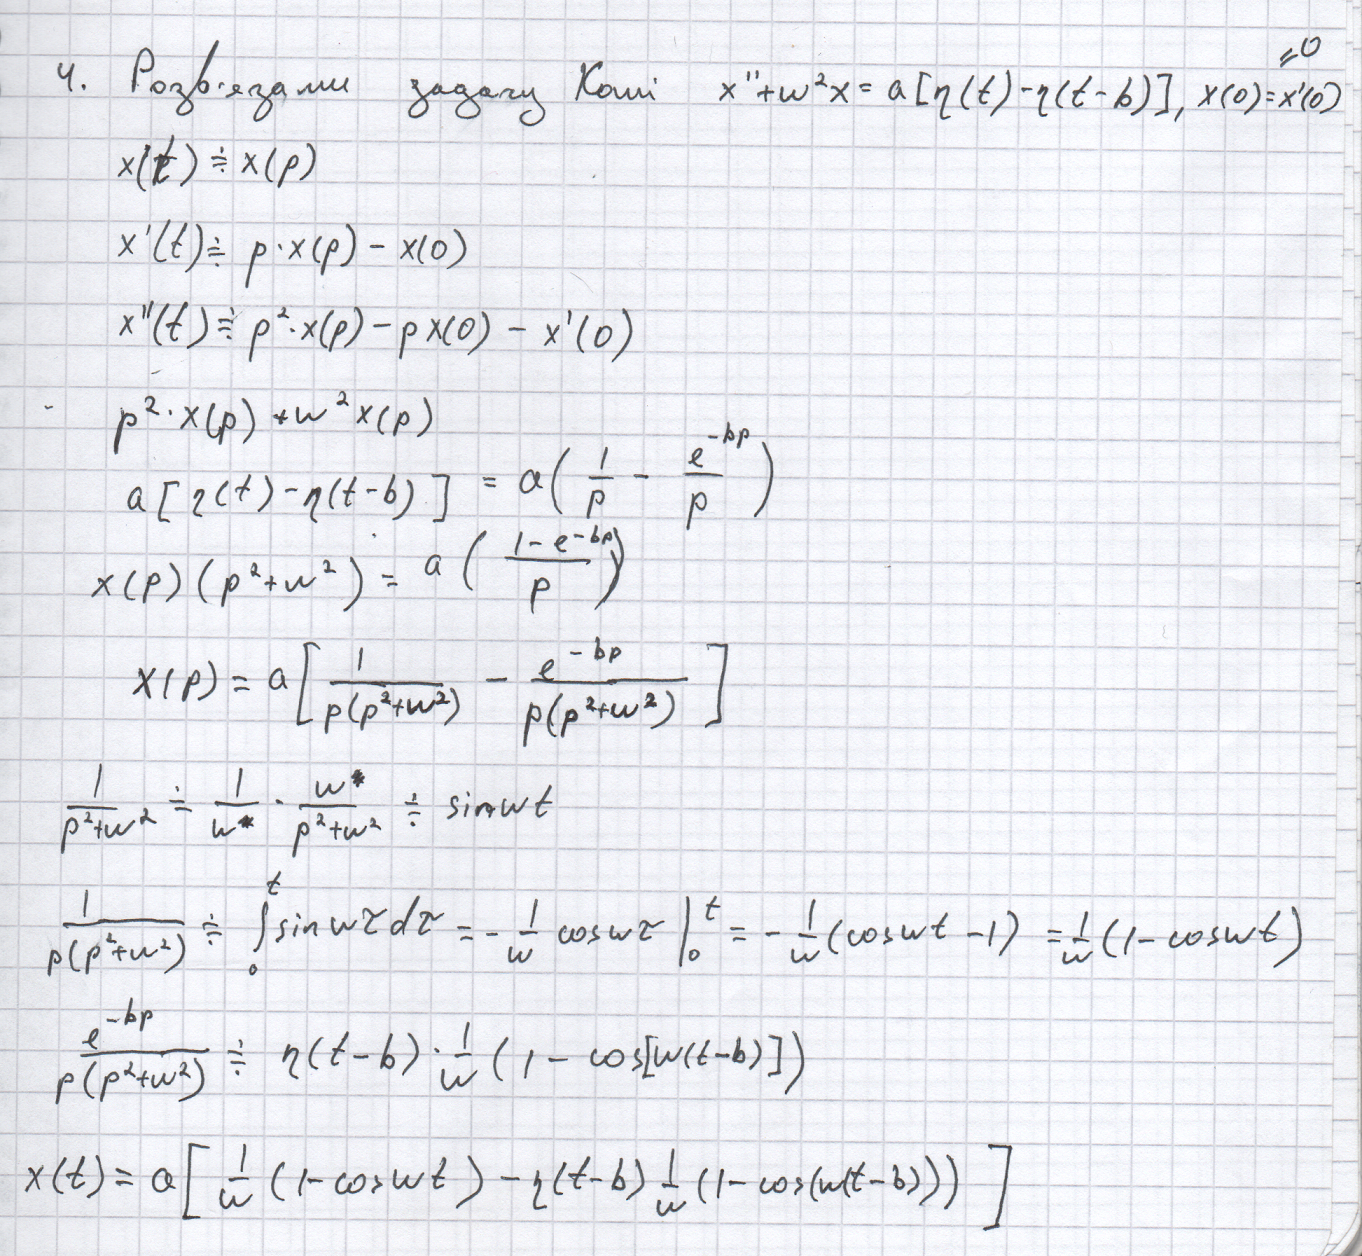 4. Розв'язати задачу Коші x''+w²x = a[η(t)-η(t-b)], x(0)=x'(0)=0
x(t) ≑ x(p)
x'(t) ≑ p·x(p) - x(0)
x''(t) ≑ p²·x(p) - px(0) - x'(0)
p²·x(p) + w²x(p)
a[η(t)-η(t-b)] = a(1/p - e^(-bp)/p)
x(p)(p²+w²) = a((1-e^(-bp))/p)
x(p) = a[1/(p(p²+w²)) - e^(-bp)/(p(p²+w²))]
1/(p²+w²) ≑ 1/w · w/(p²+w²) ≑ sin wt
1/(p(p²+w²)) ≑ ∫₀ᵗ sin wτ dτ = -1/w cos wτ |₀ᵗ = -1/w (cos wt - 1) = 1/w (1 - cos wt)
e^(-bp)/(p(p²+w²)) ≑ η(t-b)·1/w (1 - cos[w(t-b)])
x(t) = a[1/w (1-cos wt) - η(t-b) 1/w (1-cos(w(t-b)))]